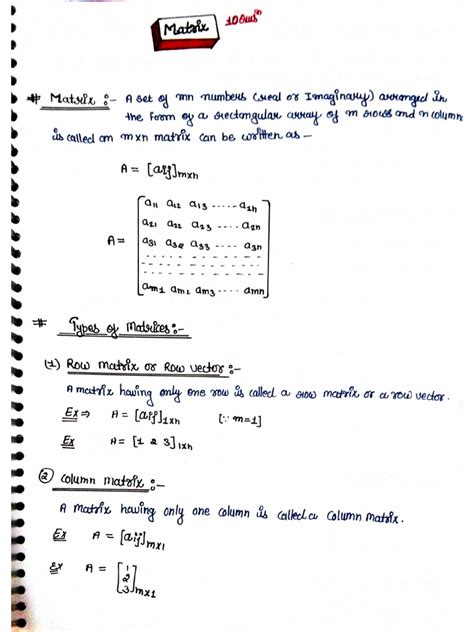 Matrix
# Matrix :- A set of mn numbers (real or Imaginary) arranged in
the form of a rectangular array of m rows and n column
is called an mxn matrix can be written as –
A = [aij]mxn
A = [a11 a12 a13 ..... a1n
a21 a22 a23 ..... a2n
a31 a32 a33 ..... a3n
am1 am2 am3 ..... amn]
# Types of Matrices:-
(1) Row matrix or Row vector :-
A matrix having only one row is called a row matrix or a row vector.
Ex ⇒ A = [aij]1xn [∵ m=1]
Ex A = [1 2 3]1xn
② Column matrix :-
A matrix having only one column is called a column matrix.
Ex A = [aij]mx1
Ex A = [1
2
3]mx1